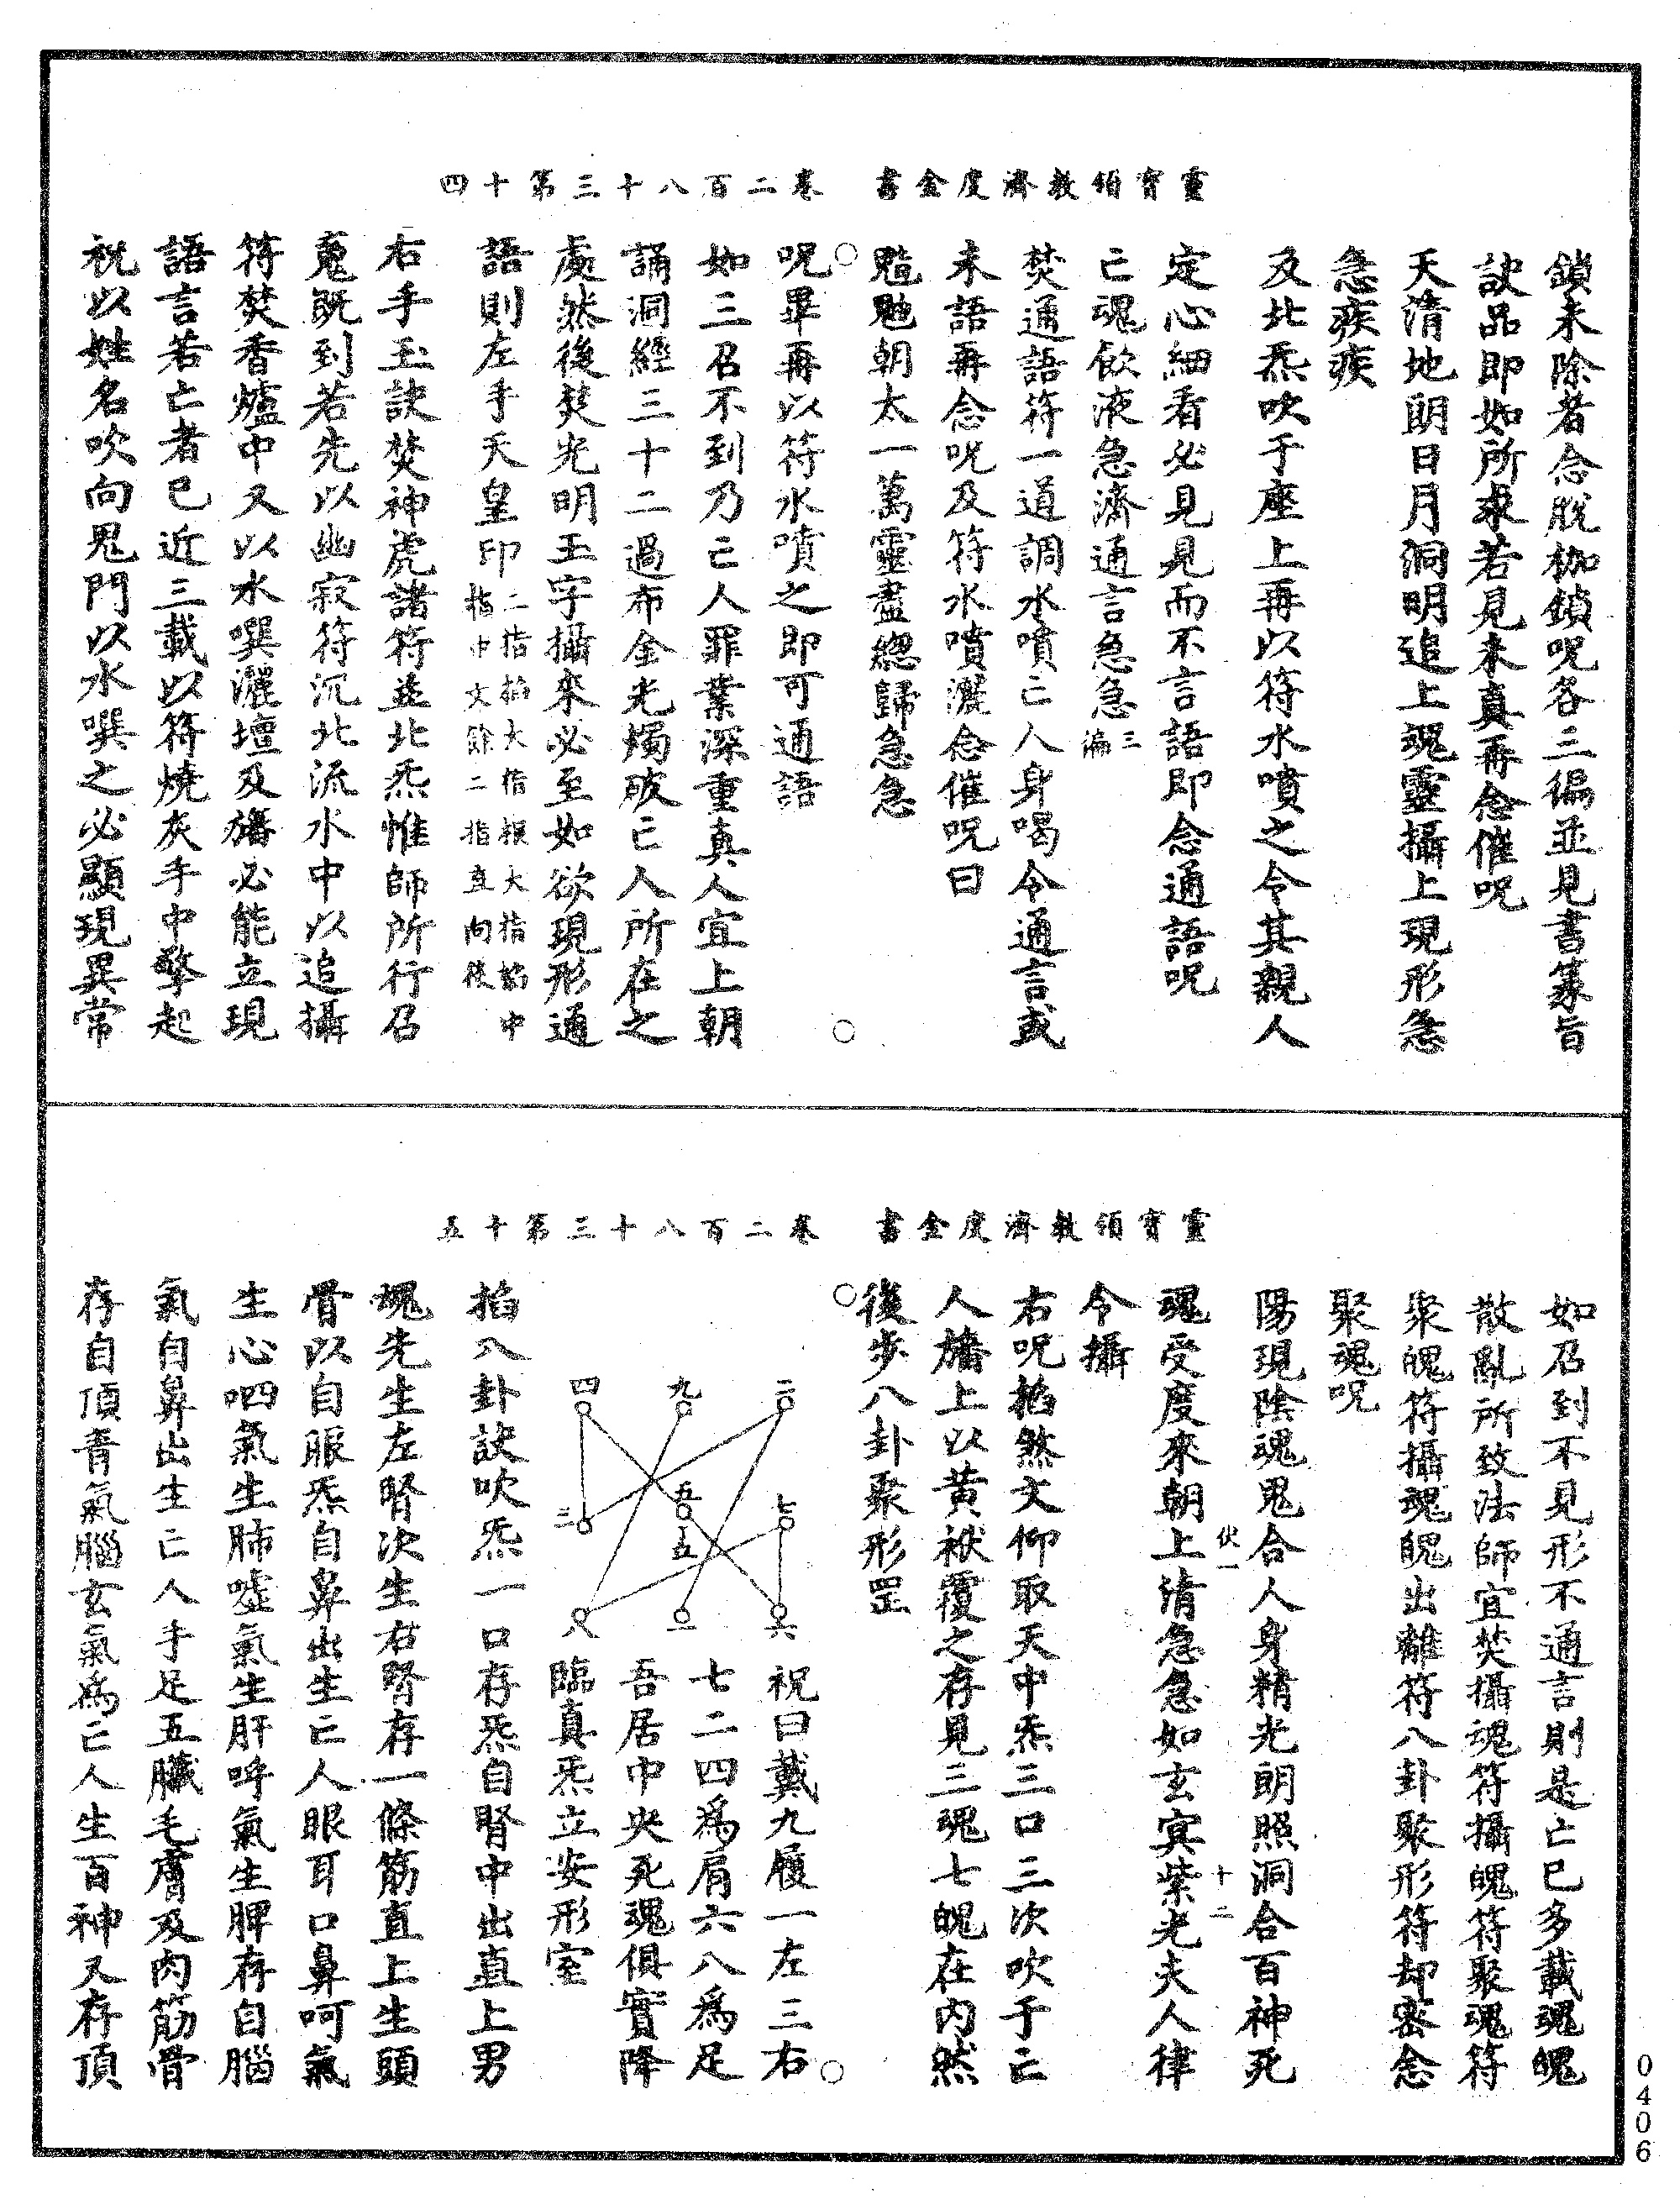 靈寳領教濟度金書　卷二百八十三第十四
鎖未除者念脫枷鎖呪各三徧並見書篆旨
訣品即如所求若見未真再念催呪
天清地朗日月洞明追上魂靈攝上現形急
急疾疾
及北炁吹于座上再以符水噴之令其親人
定心細看必見見而不言語即念通語呪
亡魂飲液急濟通言急急三徧
焚通語符一道調水噴亡人身喝令通言或
未語再念呪及符水噴灑念催呪曰
魒魓朝太一萬靈盡總歸急急
呪畢再以符水噴之即可通語
如三召不到乃亡人罪業深重真人宜上朝
誦洞經三十二過布金光燭破亡人所在之
處然後焚光明玉字攝來必至如欲現形通
語則左手天皇印二指掐大指根大指掐中指中文餘二指直向後
右手玉訣焚神虎諸符並北炁惟師所行召
䰟既到若先以幽寂符沉北流水中以追攝
符焚香爐中又以水噀灑壇及旛必能立現
語言若亡者已近三載以符燒灰手中擎起
祝以姓名吹向鬼門以水噀之必顯現異常
靈寳領教濟度金書　卷二百八十三第十五
如召到不見形不通言則是亡已多載魂魄
散亂所致法師宜焚攝魂符攝魄符聚魂符
聚魄符攝魂魄出離符八卦聚形符却密念
聚魂呪
陽現陰魂鬼合人身精光朗照洞合百神死
伙一　十二
魂受度來朝上清急急如玄冥紫光夫人律
令攝
右呪掐煞文仰取天中炁三口三次吹于亡
人旛上以黃袱覆之存見三魂七魄在內然
後步八卦聚形罡
二　九　四
七　五　十五　三
六　一　八
祝曰戴九履一左三右
七二四爲肩六八爲足
吾居中央死魂俱實降
臨真炁立安形室
掐八卦訣吹炁一口存炁自腎中出直上男
魂先生左腎次生右腎存一條筋直上生頭
骨以自眼炁自鼻出生亡人眼耳口鼻呵氣
生心呬氣生肺噓氣生肝呼氣生脾存自腦
氣自鼻出生亡人手足五臟毛膚及肉筋骨
存自頂青氣腦玄氣爲亡人生百神又存頂
0406